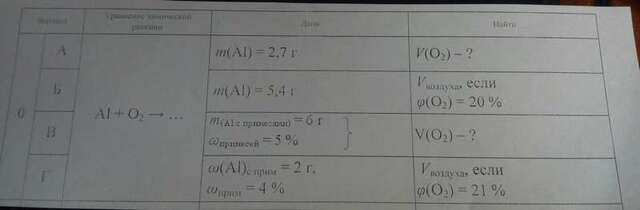 Вариант
Уравнение химической
реакции
Дано
Найти
0
Al + O₂ → ...
А
m(Al) = 2,7 г
V(O₂) – ?
Б
m(Al) = 5,4 г
Vвоздуха, если
φ(O₂) = 20 %
В
m(Al с примесями) = 6 г
ωпримесей = 5 %
V(O₂) – ?
Г
ω(Al)с прим = 2 г,
ωприм = 4 %
Vвоздуха, если
φ(O₂) = 21 %